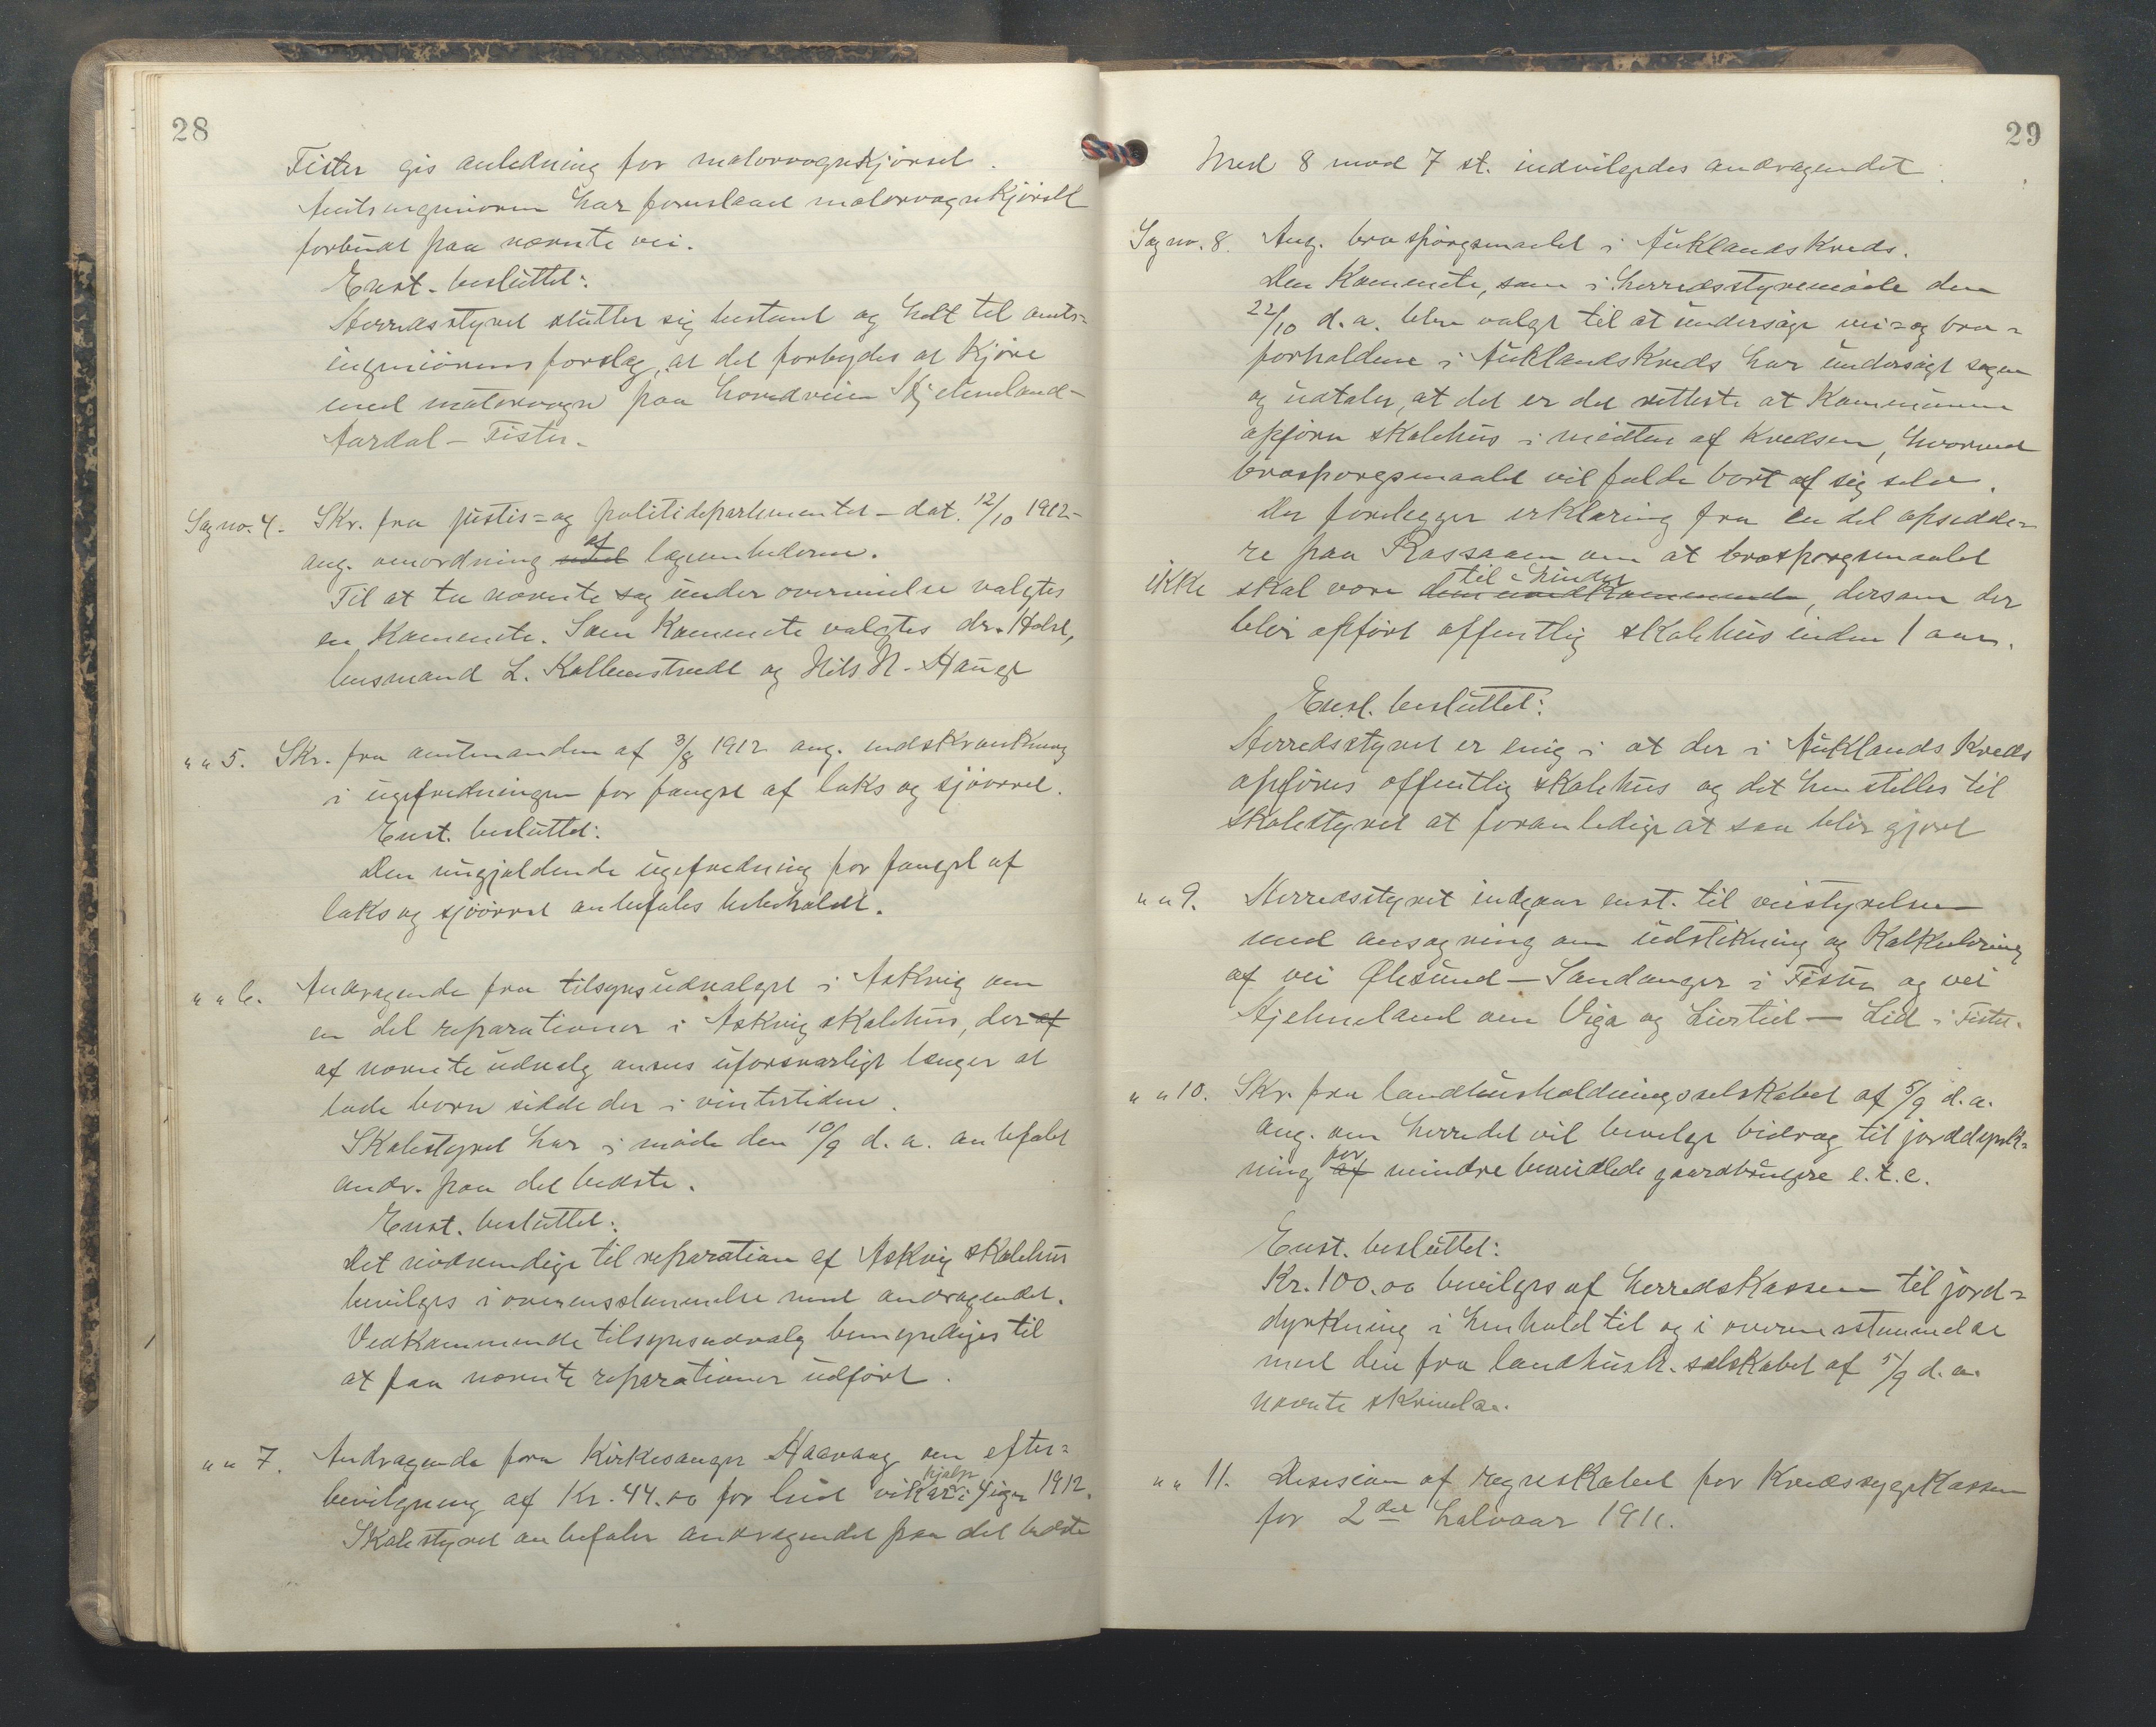 28
Fister gis anledning for motorvognkjørsel.
Amtsingeniøren har foreslaaet motorvognkjørsel
forbudt paa nævnte vei.
Enst. besluttet:
Herredsstyret slutter sig bestemt og helt til amts=
ingeniørens forslag, at det forbydes at kjøre
med motorvogn paa hovedveien Hjelmeland-
Aardal - Fister.
Sag no. 4. Skr. fra justis= og politidepartementet - dat. 12/10 1912 -
ang. omordning af lægeembederne.
Til at ta nævnte sag under overveielse valgtes
en kommite. Som kommite valgtes dr. Holst,
lensmand L. Kolbenstvedt og Nils N. Hauge
" " 5. Skr. fra amtmanden af 3/8 1912 ang. indskrænkning
i ugefredningen for fangst af laks og sjøørret.
Enst. besluttet:
Den nugjældende ugefredning for fangst af
laks og sjøørret anbefales bibeholdt.
" " 6. Andragende fra tilsynsudvalget i Askvig om
en del reparationer i Askvig skolehus, der af
af nævnte udvalg ansees uforsvarligt længer at
lade børn sidde der i vintertiden.
Skolestyret har i møde den 10/9 d. a. anbefalt
andr. paa det bedste.
Enst. besluttet:
Det nødvendige til reparation af Askvig skolehus
bevilges i overensstemmelse med andragendet.
Vedkommende tilsynsudvalg bemyndiges til
at faa nævnte reparationer udført.
" " 7. Andragende fra kirkesanger Haavaag om efter=
bevilgning af Kr. 44.00 for leiet vikarhjælp i 4 uger 1912.
Skolestyret anbefaler andragendet paa det bedste
29
Med 8 mod 7 st. indvilgedes andragendet.
Sag no. 8. Ang. brospørgsmaalet i Auklands kreds.
Den kommite, som i herredsstyremøde den
22/10 d. a. blev valgt til at undersøge vei= og bro=
forholdene i Auklands kreds har undersøgt sagen
og udtaler, at det er det retteste at kommunen
opfører skolehus i midten af kredsen, hvorved
brospørgsmaalet vil falde bort af sig selv.
Der forelegger erklæring fra en del opsidde=
re paa Rassaaen om at brospørgsmaalet
ikke skal være dem imødkommende til hinder, dersom der
blir opført offentlig skolehus inden 1 aar.
Enst. besluttet:
Herredsstyret er enig i at der i Auklands kreds
opføres offentlig skolehus og det henstilles til
skolestyret at foranledige at saa blir gjort
" " 9. Herredsstyret indgaar enst. til veistyrelsen
med ansøgning om udstikning og kalkulering
af vei Ølesund - Sandanger i Fister og vei
Hjelmeland om Viga og Liertid - Lid i Fister.
" " 10. Skr. fra landhusholdningsselskabet af 5/9 d. a.
ang. om herredet vil bevilge bidrag til jorddyrk=
ning af for mindre bemidlede gaardbrugere e.t.c.
Enst. besluttet:
Kr. 100.00 bevilges af herredskassen til jord=
dyrkning i henhold til og i overensstemmelse
med den fra landhush. selskabet af 5/9 d. a.
nævnte skrivelse.
" " 11. Desision af regnskabet for kredssygekassen
for 2det halvaar 1911.